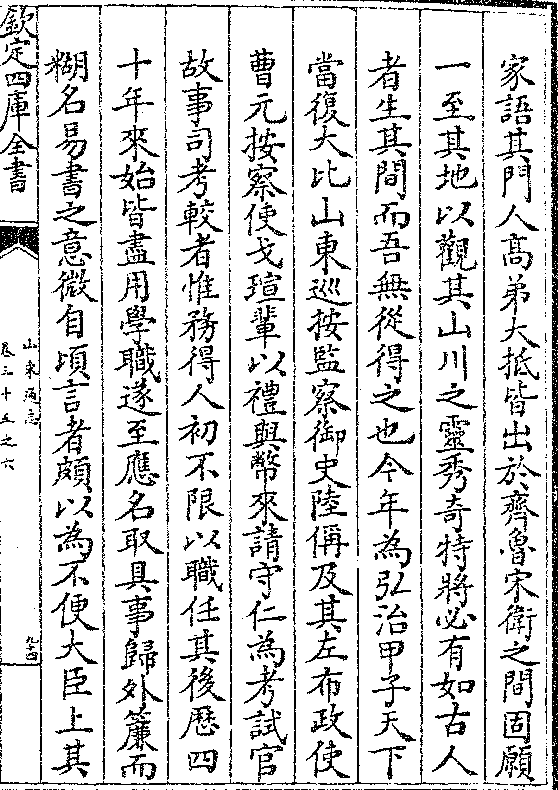 家語其門人髙弟大抵皆出於齊魯宋衛之間固願
一至其地以觀其山川之靈秀奇特將必有如古人
者生其間而吾無從得之也今年為弘治甲子天下
當復大比山東巡按監察御史陸偁及其左布政使
曹元按察使戈瑄輩以禮與幣來請守仁為考試官
故事司考較者惟務得人初不限以職任其後歴四
十年來始皆盡用學職遂至應名取具事歸外簾而
糊名易書之意微自頃言者頗以為不便大臣上其
欽定四庫全書
山東通志
卷三十五之六
九十四